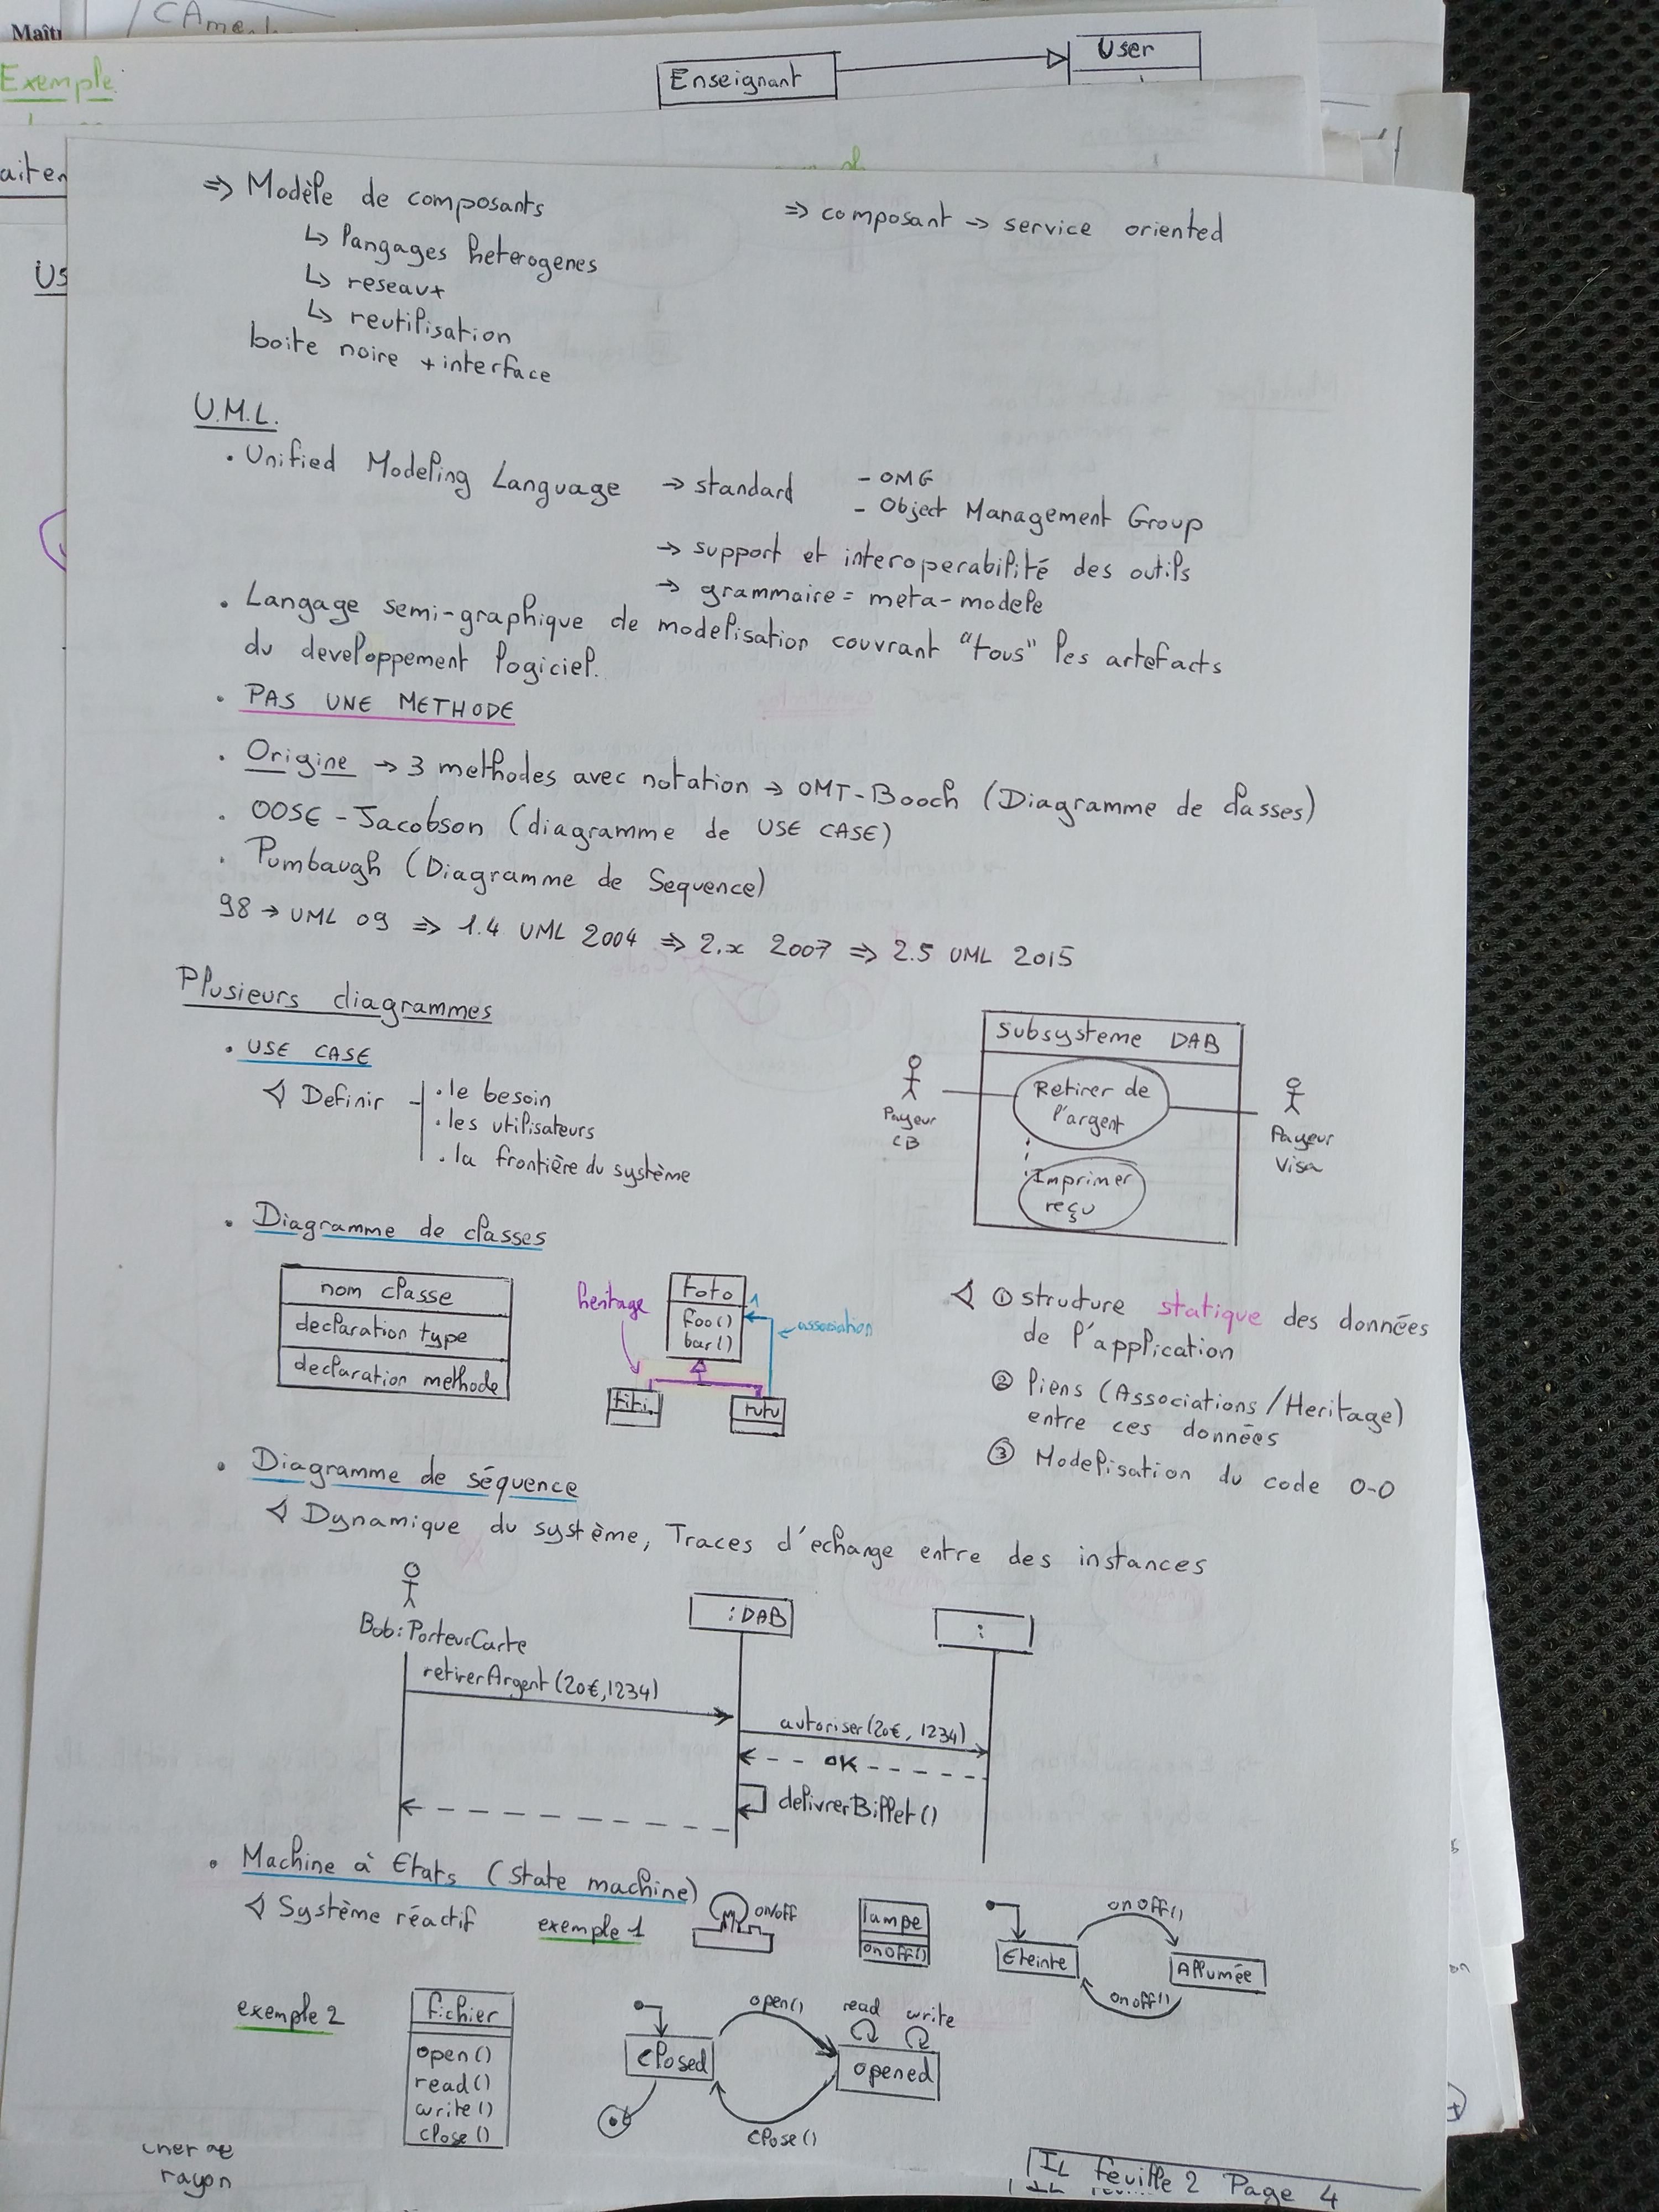 Maît
CAme
Exemple
Enseignant
User
aiter
US
=> Modèle de composants
↳ langages heterogenes
↳ reseaux
↳ reutilisation
boite noire + interface
=> composant -> service oriented
U.M.L.
. Unified Modeling Language -> standard - OMG
- Object Management Group
-> support et interoperabilité des outils
-> grammaire = meta-modele
. Langage semi-graphique de modelisation couvrant "tous" les artefacts
du developpement logiciel.
. PAS UNE METHODE
. Origine -> 3 methodes avec notation -> OMT-Booch (Diagramme de classes)
. OOSE - Jacobson (diagramme de USE CASE)
. Pumbaugh (Diagramme de Sequence)
98 -> UML 09 => 1.4 UML 2004 => 2.x 2007 => 2.5 UML 2015
Plusieurs diagrammes
. USE CASE
Definir
. le besoin
. les utilisateurs
. la frontière du système
Subsysteme DAB
Retirer de
l'argent
Imprimer
reçu
Payeur
CB
Payeur
Visa
. Diagramme de classes
nom classe
declaration type
declaration methode
heritage
toto
foo()
bar()
1
association
titi
tutu
① structure statique des données
de l'application
② liens (Associations/Heritage)
entre ces données
③ Modelisation du code O-O
. Diagramme de séquence
Dynamique du système, Traces d'echange entre des instances
Bob:PorteurCarte
:DAB
:
retirerArgent(20€,1234)
autoriser(20€, 1234)
OK
delivrerBillet()
. Machine à Etats (State machine)
Système réactif
exemple 1
on/off
lampe
onOff()
Eteinte
onOff()
Allumée
onoff()
exemple 2
fichier
open()
read()
write()
close()
closed
open()
read
write
opened
close()
rayon
IL feuille 2 Page 4